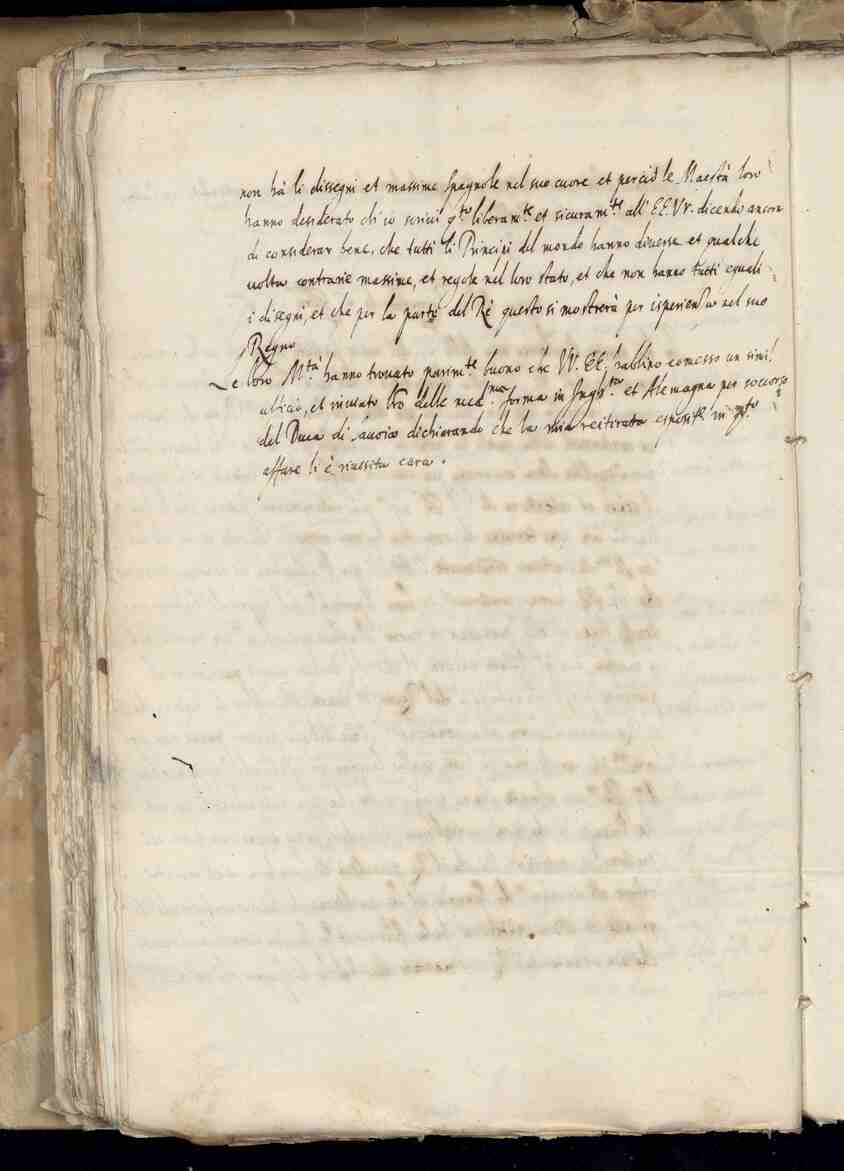 non hà li dissegni et massime spagnole nel suo cuore et perciò le Maestà loro
hanno desiderato ch'io scrivi q.to liberam.te et sicuram.te all'EE.VV. dicendo ancora
di considerar bene, che tutti li Principi del mondo hanno diverse et qualche
volta contrarie massime, et regole nel loro stato, et che non hanno tutti eguali
i disegni, et che per la parte del Rè questo si mostrerà per isperienza nel suo
Regno
Le loro M.tà hanno trovato parim.te buono che VV. EE. habbino comesso un simil
officio, et inviato delle med.me forma in Ingh.ra et Alemagna per soccorso
del Duca di Savoia dichiarando che la mia reiterata in q.to
affare li è riussita cara.